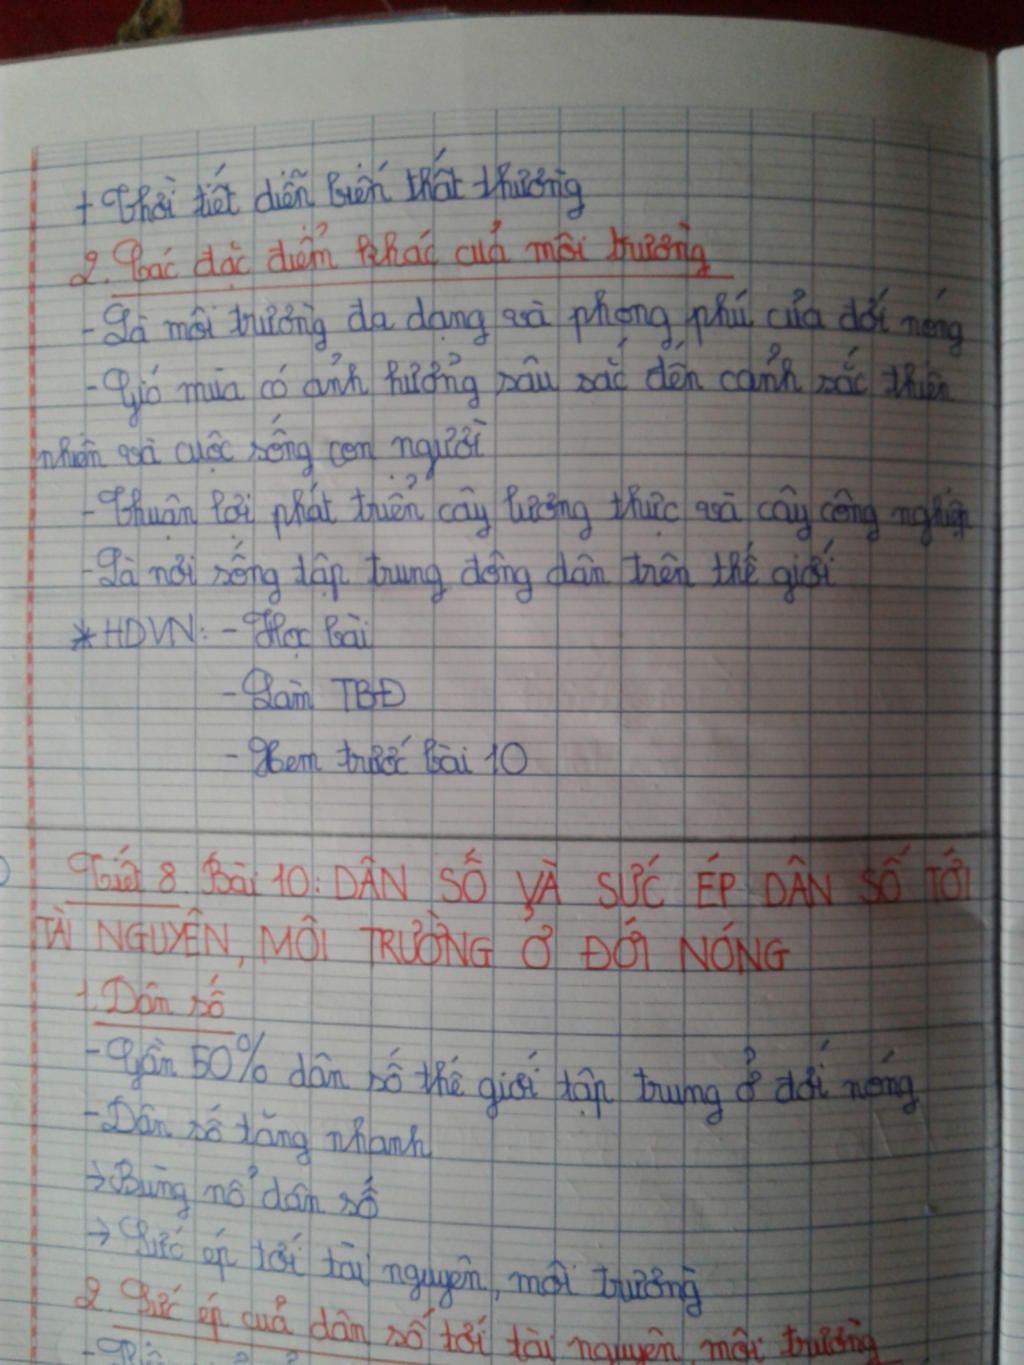 + Thời tiết diễn biến thất thường
2. Các đặc điểm khác của môi trường
- Là môi trường đa dạng và phong phú của đới nóng
- Gió mùa có ảnh hưởng sâu sắc đến cảnh sắc thiên
nhiên và cuộc sống con người
- Thuận lợi phát triển cây lương thực và cây công nghiệp
- Là nơi sống tập trung đông dân trên thế giới
* HDVN: - Học bài
- Làm TBĐ
- Xem trước bài 10
Tiết 8. Bài 10: DÂN SỐ VÀ SỨC ÉP DÂN SỐ TỚI
TÀI NGUYÊN, MÔI TRƯỜNG Ở ĐỚI NÓNG
1. Dân số
- Gần 50% dân số thế giới tập trung ở đới nóng
- Dân số tăng nhanh
→ Bùng nổ dân số
→ Sức ép tới tài nguyên, môi trường
2. Sức ép của dân số tới tài nguyên, môi trường